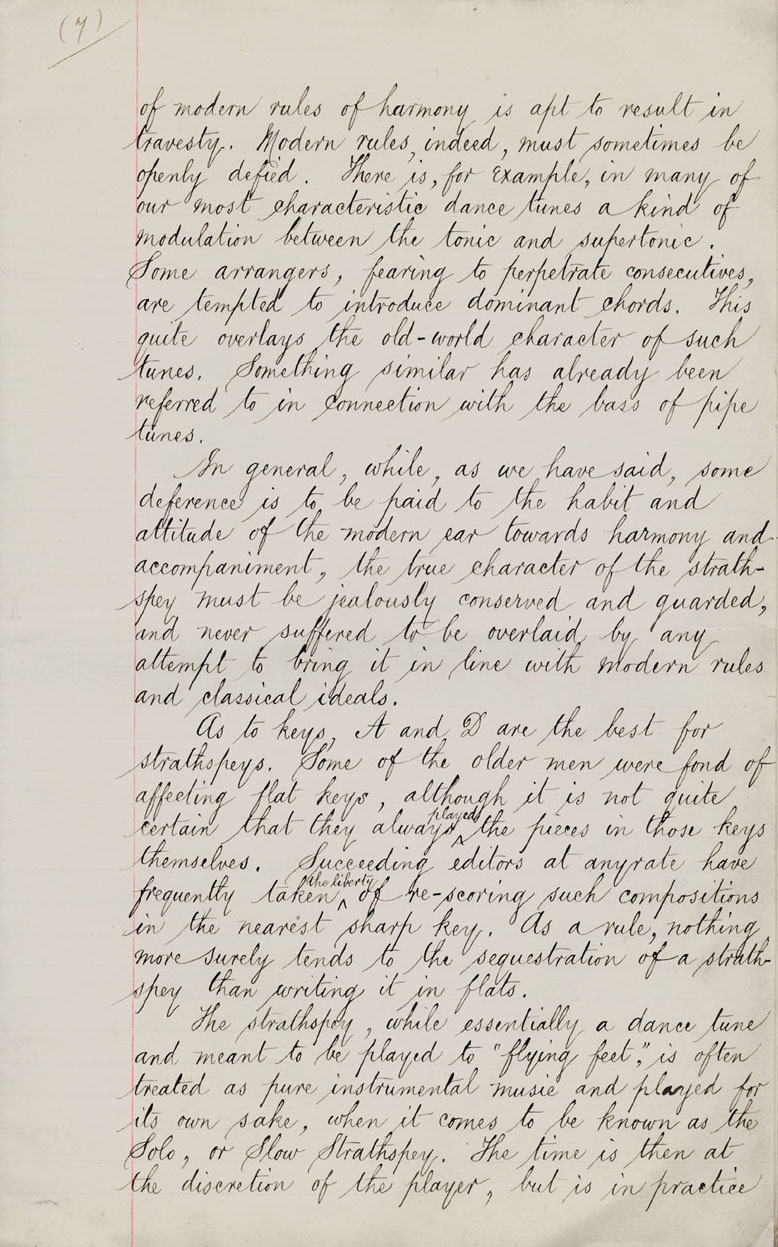 (7)
of modern rules of harmony is apt to result in
travesty. Modern rules, indeed, must sometimes be
openly defied. There is, for example, in many of
our most characteristic dance tunes a kind of
modulation between the tonic and supertonic.
Some arrangers, fearing to perpetrate consecutives,
are tempted to introduce dominant chords. This
quite overlays the old-world character of such
tunes. Something similar has already been
referred to in connection with the bass of pipe
tunes.
In general, while, as we have said, some
deference is to be paid to the habit and
attitude of the modern ear towards harmony and
accompaniment, the true character of the strath-
spey must be jealously conserved and guarded,
and never suffered to be overlaid by any
attempt to bring it in line with modern rules
and classical ideals.
As to keys, A and D are the best for
strathspeys. Some of the older men were fond of
affecting flat keys, although it is not quite
certain that they always played the pieces in those keys
themselves. Succeeding editors at anyrate have
frequently taken the liberty of re-scoring such compositions
in the nearest sharp key. As a rule, nothing
more surely tends to the sequestration of a strath-
spey than writing it in flats.
The strathspey, while essentially a dance tune
and meant to be played to "flying feet," is often
treated as pure instrumental music and played for
its own sake, when it comes to be known as the
Solo, or Slow Strathspey. The time is then at
the discretion of the player, but is in practice